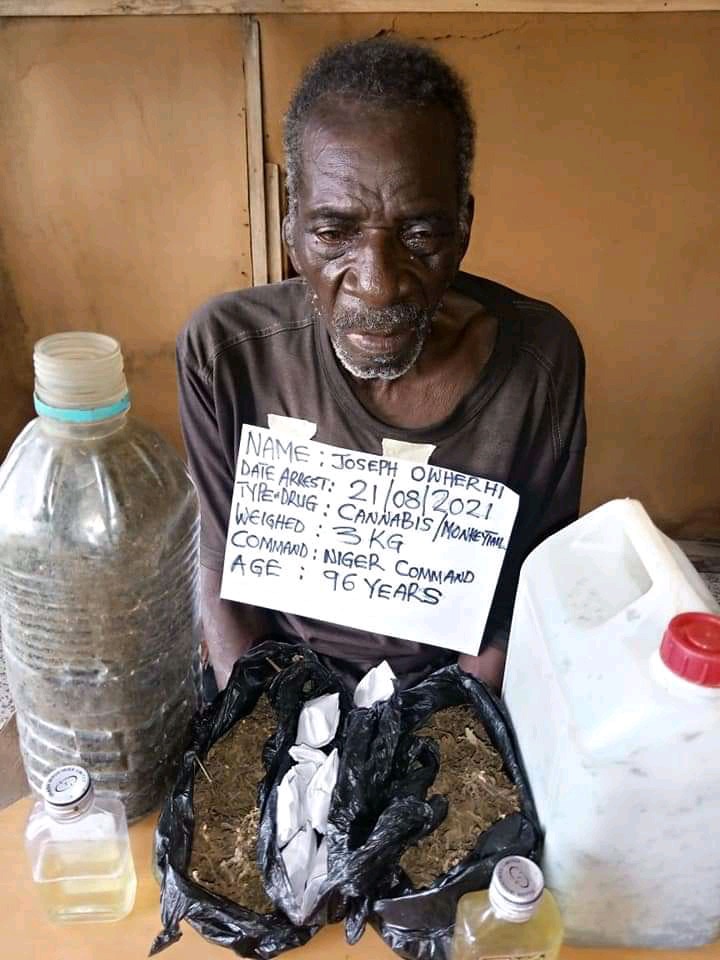 NAME : JOSEPH OWHERHI
DATE ARREST: 21/08/2021
TYPE OF DRUG : CANNABIS/MONKEYTAIL
WEIGHED : 3 KG
COMMAND : NIGER COMMAND
AGE : 96 YEARS